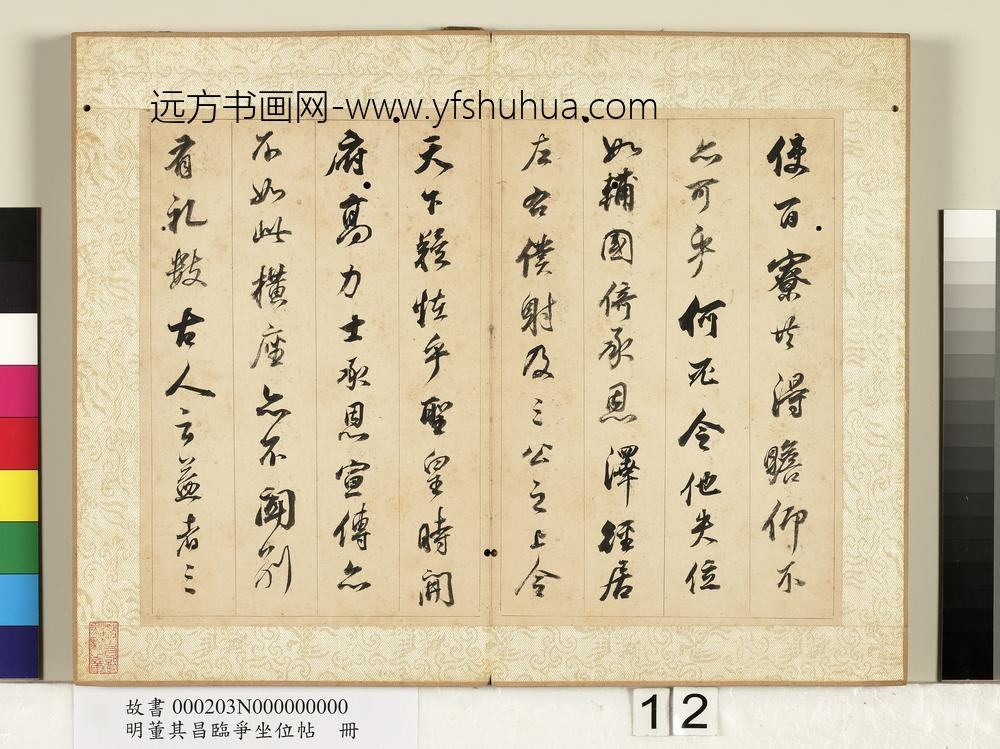 远方书画网-www.yfshuhua.com
使百寮共得瞻仰不
亦可乎何必令他失位
如輔國倚承恩澤徑居
左右僕射及三公之上令
天下疑怪乎聖皇時開
府高力士承恩宣傳亦
不如此橫座亦不聞別
有礼數古人云益者三
故書 000203N000000000
明董其昌臨爭坐位帖 冊
12